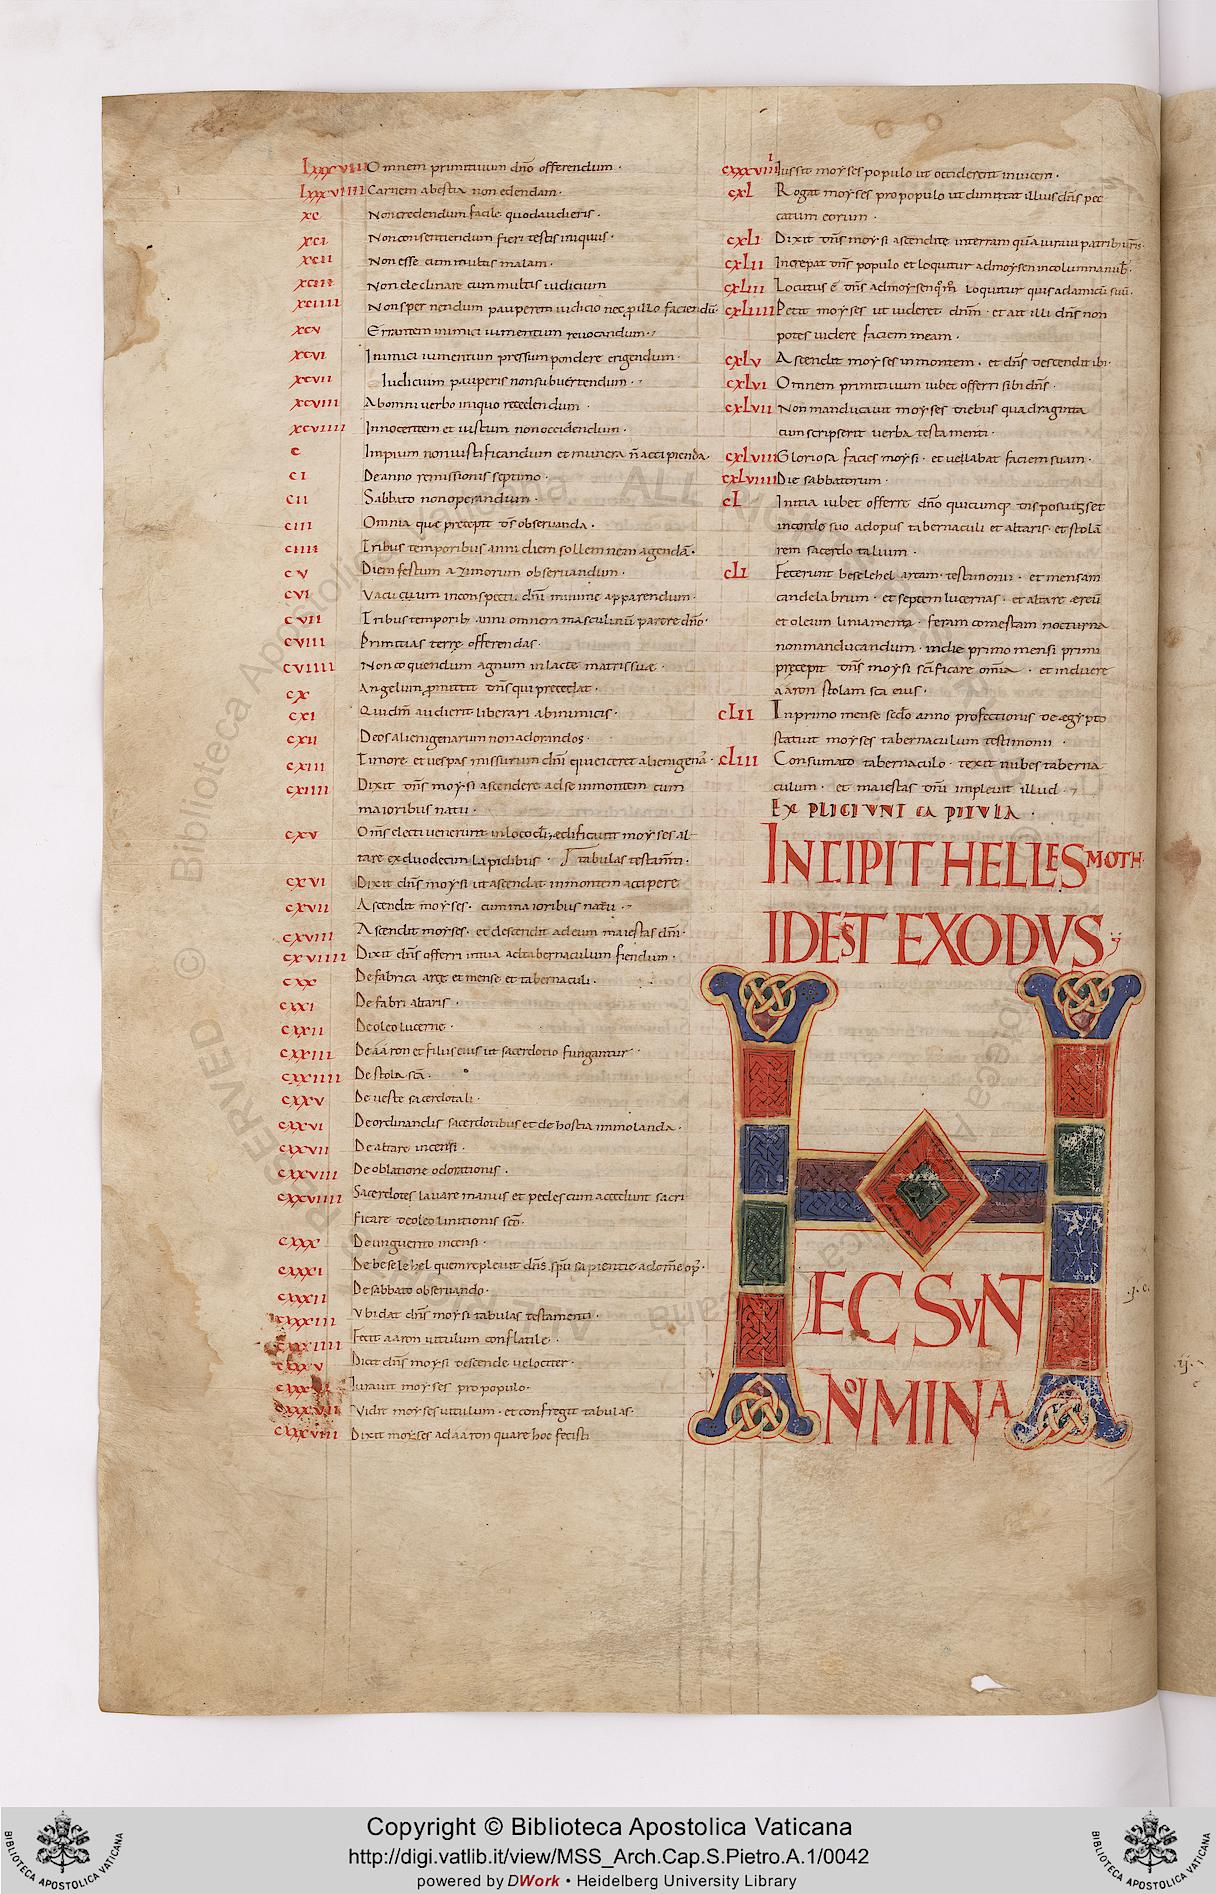 Lxxxviii Omnem primitiuum dño offerendum ·
Lxxxviiii Carnem abestia non edendam ·
xc Non credendum facile quod audieris ·
xci Non consentiendum fieri testis iniquus ·
xcii Non esse cum multis malam ·
xciii Non declinare cum multis iudicium
xciiii Non spernendum pauperem iudicio nec pillo faciendū ·
xcv Errantem inimici iumentum reuocandum ·
xcvi Inimici iumentum pressum pondere erigendum ·
xcvii Iudicium pauperis non subuertendum ·
xcviii Ab omni uerbo iniquo recedendum ·
xcviiii Innocentem et iustum non occidendum ·
c Impium non iustificandum et munera ñ accipienda ·
ci De anno remissionis septimo ·
cii Sabbato non operandum ·
ciii Omnia que precepit dˉs obseruanda ·
ciiii Tribus temporibus anni diem sollemnem agendā ·
cv Diem festum azimorum obseruandum ·
cvi Vacuum in conspectu dñi minime apparendum ·
cvii Tribus temporib; anni omnem masculinū parere dño ·
cviii Primitias terre offerendas ·
cviiii Non coquendum agnum in lacte matris suae ·
cx Angelum promittit dñs qui precedat ·
cxi Qui dm̄ audierit liberari ab inimicis ·
cxii Deos alienigenarum non adorandos ·
cxiii Timore et uespas missurum dñm qui eiceret alienigenā ·
cxiiii Dixit dñs moysi ascendere ad se in montem cum
maioribus natu ·
cxv Omˉs electi uenerunt in loco di · edificauit moyses al
tare ex duodecim lapidibus · tabulas testamti ·
cxvi Dixit dñs moysi ut ascendat in montem accipere
cxvii Ascendit moyses · cum maioribus natu ·
cxviii Ascendit moyses · et descendit ad eum maiestas dñi ·
cxviiii Dixit dñs offerri initia ad tabernaculum fiendum ·
cxx De fabrica arçe et mense et tabernaculi ·
cxxi De fabri altaris ·
cxxii De oleo lucerne ·
cxxiii De aaron et filiis eius ut sacerdotio fungantur ·
cxxiiii De stola scā ·
cxxv De ueste sacerdotali ·
cxxvi De ordinandis sacerdotibus et de hostia immolanda ·
cxxvii De altare incensi ·
cxxviii De oblatione odorationis ·
cxxviiii Sacerdotes lauare manus et pedes cum accedunt sacri
ficare de oleo linitionis scō ·
cxxx De unguento incensi ·
cxxxi De beselehel quem repleuit dñs spū sapientie ad omē op ·
cxxxii De sabbato obseruando ·
cxxxiii Vbi dat dñs moysi tabulas testamenti ·
cxxxiiii Fecit aaron uitulum conflatile ·
cxxxv Dicit dñs moysi descende uelociter ·
Iurauit moyses pro populo ·
cxxxvii Vidit moyses uitulum · et confregit tabulas ·
cxxxviii Dixit moyses ad aaron quare hoc fecisti
cxxxviiii Iussit moyses populo ut occiderent inuicem ·
cxl Rogat moyses pro populo ut dimittat illius dñs pec
catum eorum ·
cxLi Dixit dñs moysi ascendite in terram quā iuraui patrib; uris ·
cxLii Increpat dñs populo et loquitur ad moysen in columna nub ·
cxLiii Locutus ē dñs ad moysen qm̄ loquitur quis ad amicū suū ·
cxLiiii Petit moyses ut uideret dñm · et ait illi dñs non
potes uidere faciem meam ·
cxLv Ascendit moyses in montem · et dñs descendit ibi ·
cxLvi Omnem primitiuum iubet offerri sibi dñs ·
cxLvii Non manducauit moyses diebus quadraginta
cum scripserit uerba testamenti ·
cxLviii Gloriosa facies moysi · et uellabat faciem suam ·
cxLviiii Die sabbatorum ·
cL Initia iubet offerre dño quicumq;
in corde suo ad opus tabernaculi et altaris · et stolā
rem sacerdotalium ·
cLi Fecerunt beselehel arcam testimonii · et mensam
candelabrum · et septem lucernas · et altare ereū
et oleum liniamenta · feram comestam nocturna
non manducandum · in die primo mensi primi
precepit dñs moysi scīficare omīa · et induere
aaron stolam scā eius ·
cLii In primo mense scdō anno profectionis de egypto
statuit moyses tabernaculum testimonii ·
cLiii Consumato tabernaculo · texit nubes taberna
culum · et maiestas dñi impleuit illud ·
EXPLICIUNT CAPITULA ·
INCIPIT HELLESMOTH
IDEST EXODVS
HEC SVNT
NOMINA
Copyright © Biblioteca Apostolica Vaticana
http://digi.vatlib.it/view/MSS_Arch.Cap.S.Pietro.A.1/0042
powered by DWork • Heidelberg University Library
BIBLIOTECA APOSTOLICA VATICANA
BIBLIOTECA APOSTOLICA VATICANA